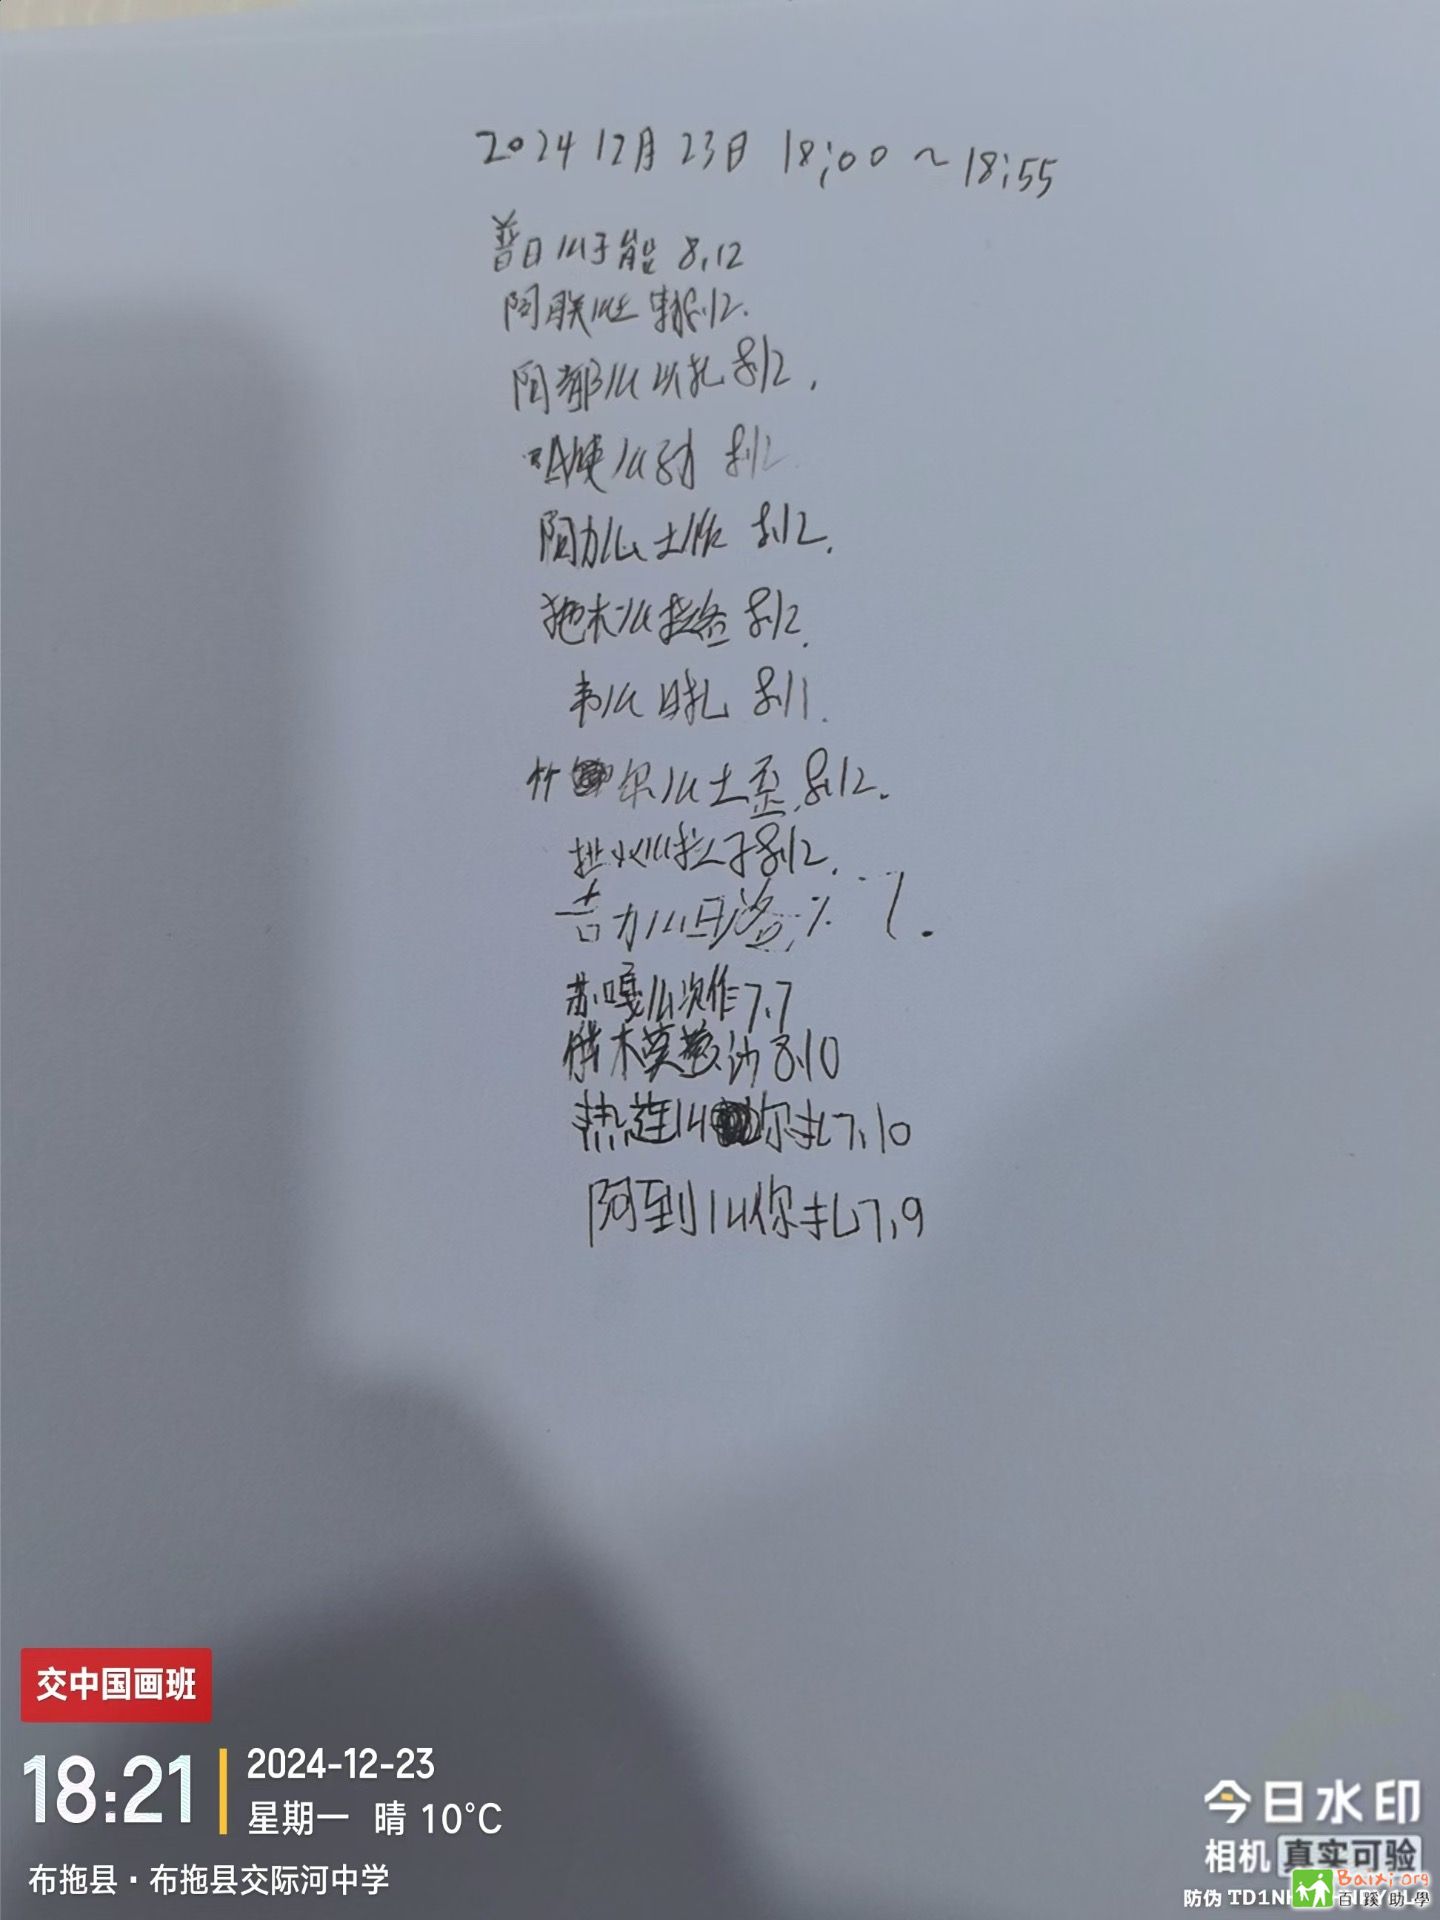 2024 12月 23日 18:00 ~ 18:55
普日么子能 8.12
阿联么 8.12.
阿都么以扎 8.12.
么 8.12
阿加么土作 8.12.
拖木么拉洛 8.12.
韦么日扎 8.11.
尔么土歪 8.12.
么拉子 8.12.
吉力么日洛
苏嘎么次作 7.7
木莫 8.10
热连么你扎 7.10
阿到么你扎 7.9
交中国画班
18:21
2024-12-23
星期一 晴 10°C
布拖县·布拖县交际河中学
今日水印
相机 真实可验
防伪 TD1N
Baixi.org
百蹊助學